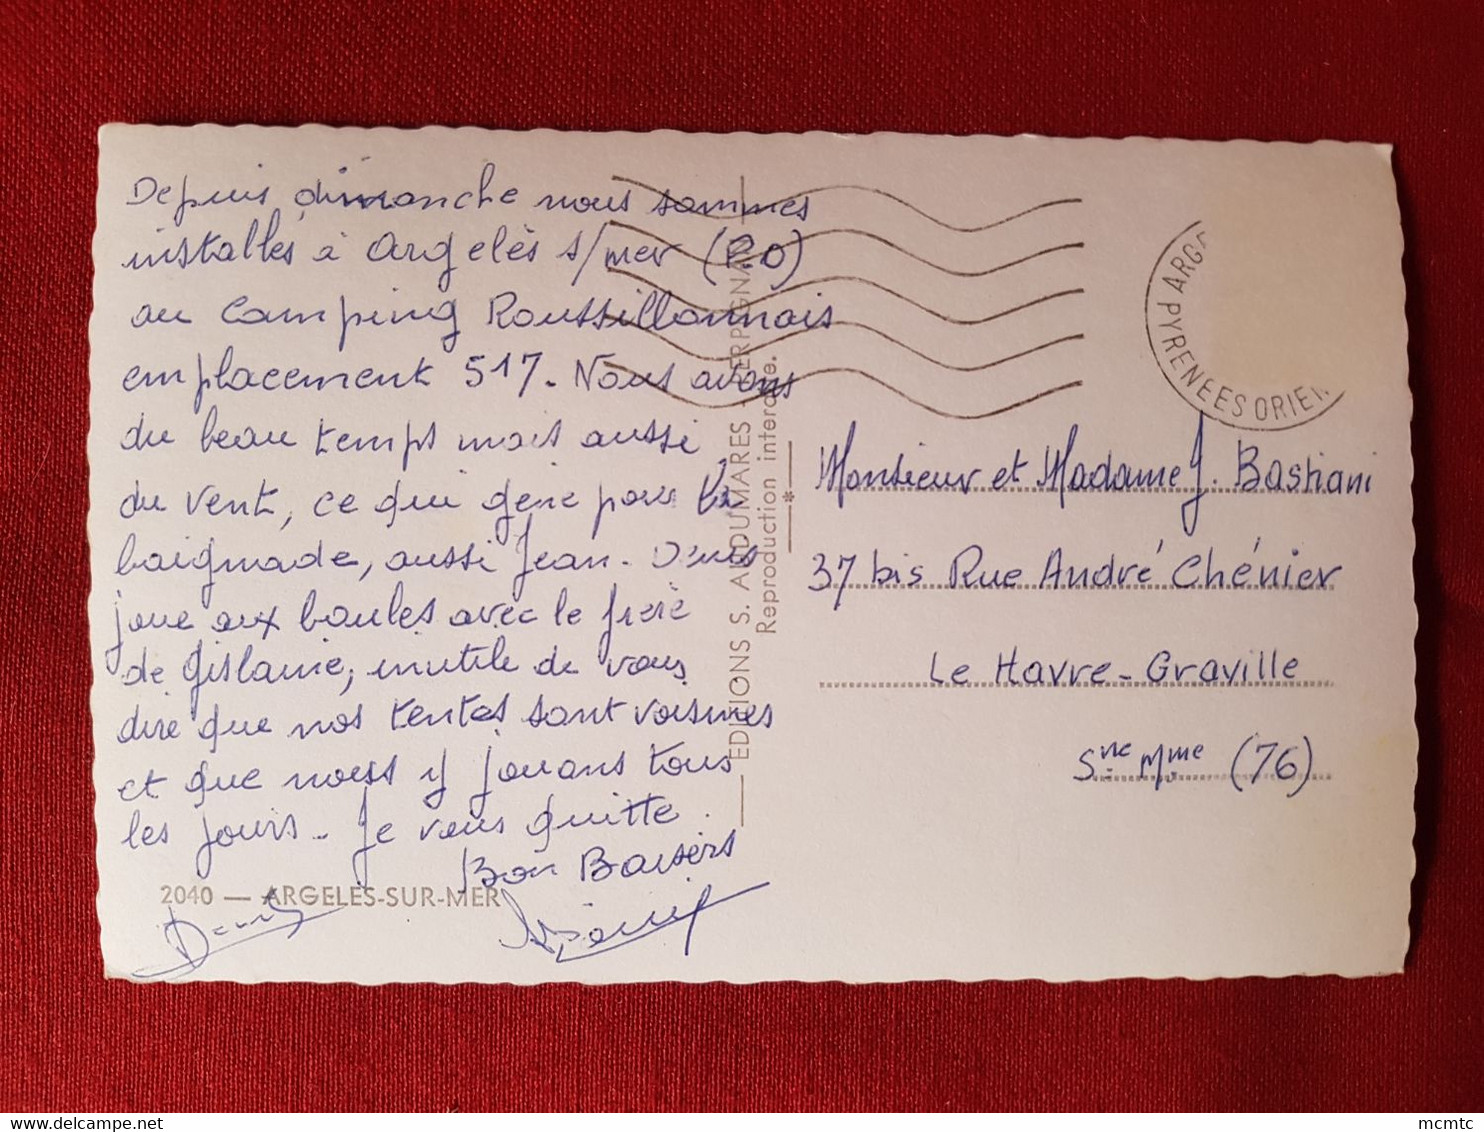 Depuis dimanche nous sommes
installés à Argelès s/mer (P.O)
au Camping Roussillonnais
emplacement 517. Nous avons
du beau temps mais aussi
du vent, ce qui gêne pour la
baignade, aussi Jean-Denis
joue aux boules avec le frère
de Gislaine, inutile de vous
dire que nos tentes sont voisines
et que nous y jouons tous
les jours. Je vous quitte.
Bon Baisers
2040 — ARGELES-SUR-MER
Denis
EDITIONS S. AUDUMARES - PERPIGNAN
Reproduction interdite.
PYRENEES ORIEN
Monsieur et Madame J. Bastiani
37 bis Rue André Chénier
Le Havre-Graville
Sne Mme (76)
mcmtc